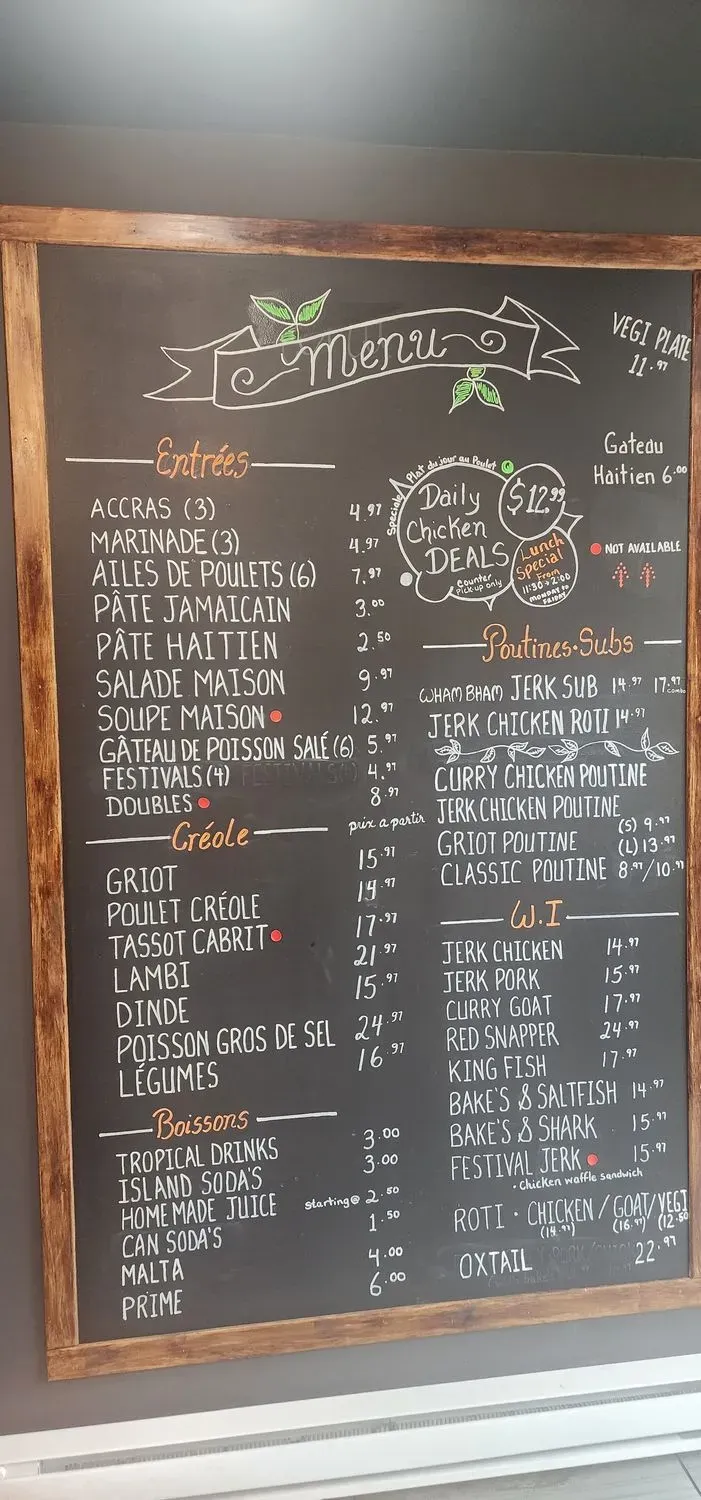 Menu
VEGI PLATE
11.97
Gateau
Haitien 6.00
Entrées
ACCRAS (3) 4.97
MARINADE (3) 4.97
AILES DE POULETS (6) 7.97
PÂTE JAMAICAIN 3.00
PÂTE HAITIEN 2.50
SALADE MAISON 9.97
SOUPE MAISON 12.97
GÂTEAU DE POISSON SALÉ (6) 5.97
FESTIVALS (4) 4.97
DOUBLES 8.97
Créole
prix a partir
GRIOT 15.97
POULET CRÉOLE 14.97
TASSOT CABRIT 17.97
LAMBI 21.97
DINDE 15.97
POISSON GROS DE SEL 24.97
LÉGUMES 16.97
Boissons
TROPICAL DRINKS 3.00
ISLAND SODA'S 3.00
HOMEMADE JUICE starting@ 2.50
CAN SODA'S 1.50
MALTA 4.00
PRIME 6.00
Speciale Plat du jour au Poulet
Daily
Chicken
DEALS
$12.99
Counter
Pick-up only
Lunch
Special
From
11:30→2:00
MONDAY TO
FRIDAY
NOT AVAILABLE
Poutines·Subs
WHAM BHAM JERK SUB 14.97 17.97
combo
JERK CHICKEN ROTI 14.97
CURRY CHICKEN POUTINE
JERK CHICKEN POUTINE
(S) 9.97
GRIOT POUTINE (L) 13.97
CLASSIC POUTINE 8.97/10.97
W.I
JERK CHICKEN 14.97
JERK PORK 15.97
CURRY GOAT 17.97
RED SNAPPER 24.97
KING FISH 17.97
BAKE'S & SALTFISH 14.97
BAKE'S & SHARK 15.97
FESTIVAL JERK 15.97
• Chicken waffle sandwich
ROTI · CHICKEN / GOAT / VEGI
(14.97) (16.97) (12.50
OXTAIL 22.97